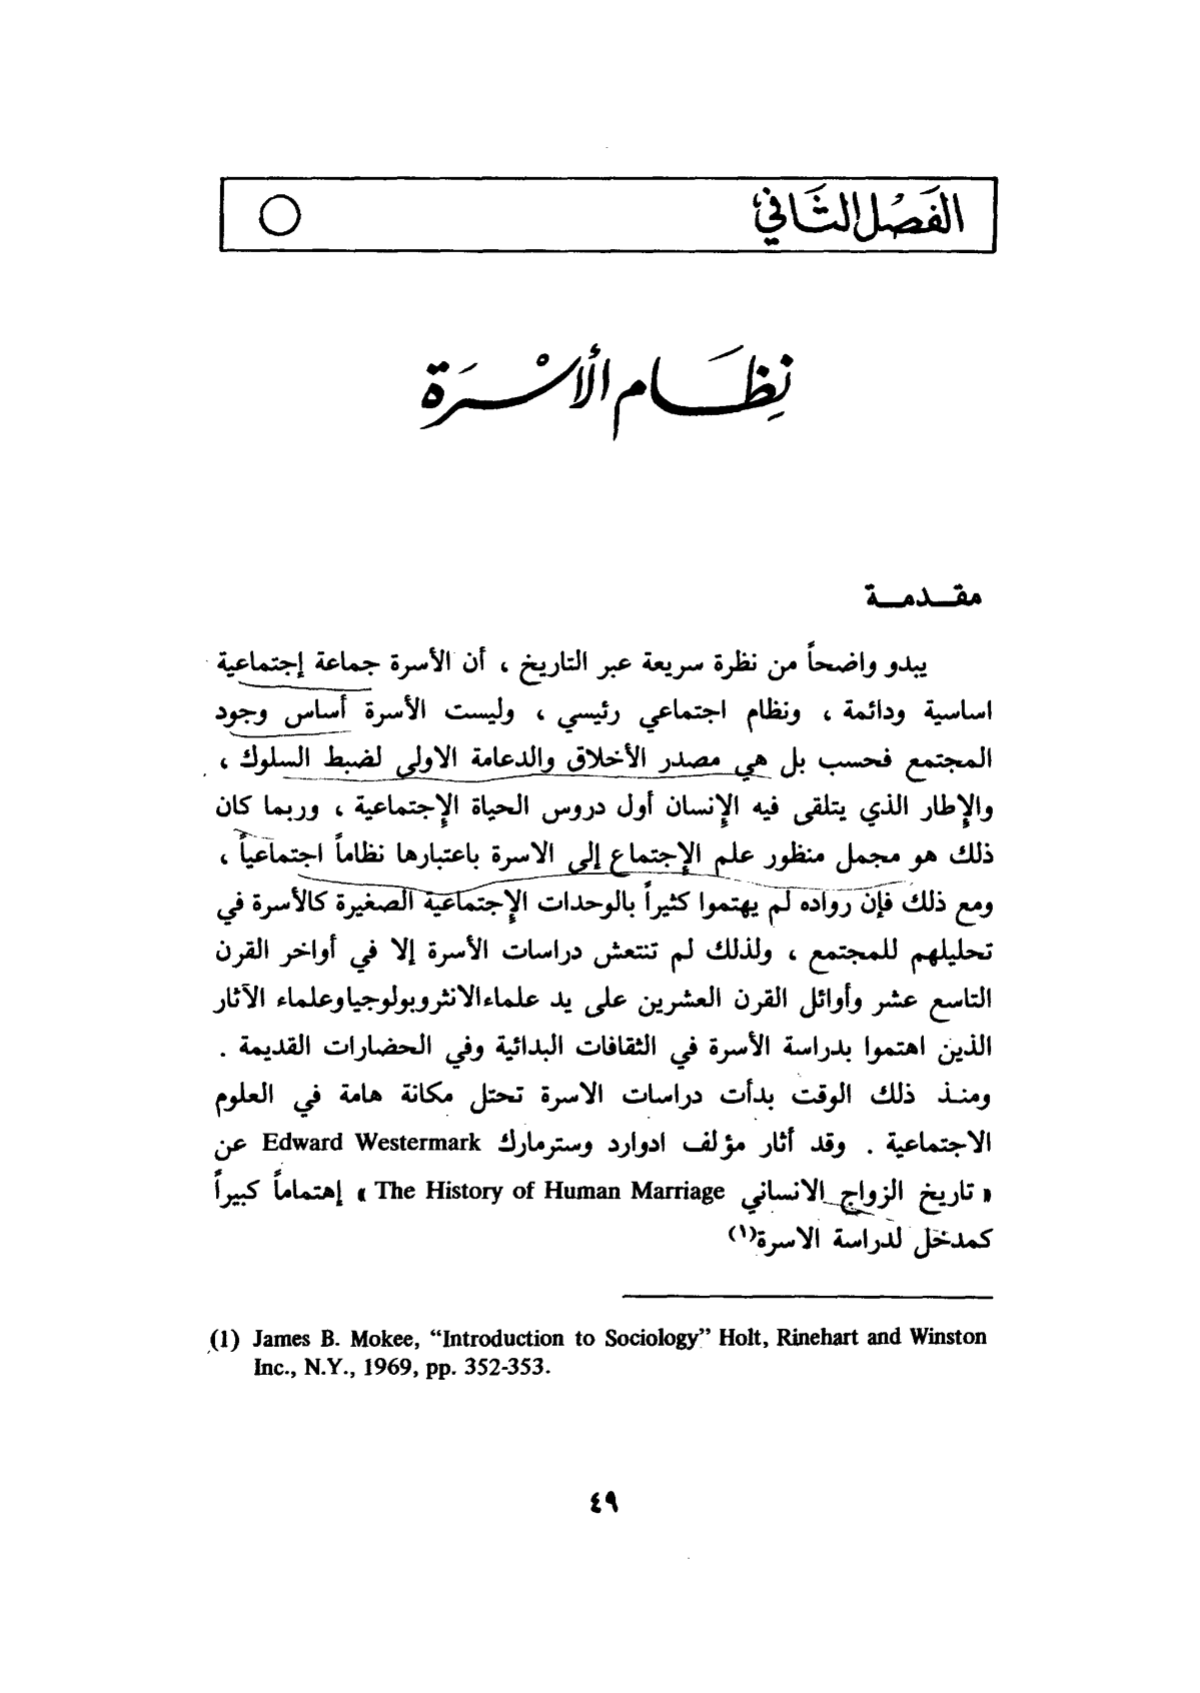 الفَصْل الثَّاني
نِظَام الأسْرَة
مقدمة
يبدو واضحاً من نظرة سريعة عبر التاريخ ، أن الأسرة جماعة إجتماعية
اساسية ودائمة ، ونظام اجتماعي رئيسي ، وليست الأسرة أساس وجود
المجتمع فحسب بل هي مصدر الأخلاق والدعامة الاولى لضبط السلوك ،
والإطار الذي يتلقى فيه الإنسان أول دروس الحياة الإجتماعية ، وربما كان
ذلك هو مجمل منظور علم الإجتماع إلى الاسرة باعتبارها نظاماً اجتماعياً ،
ومع ذلك فإن رواده لم يهتموا كثيراً بالوحدات الإجتماعية الصغيرة كالأسرة في
تحليلهم للمجتمع ، ولذلك لم تنتعش دراسات الأسرة إلا في أواخر القرن
التاسع عشر وأوائل القرن العشرين على يد علماءالانثروبولوجياوعلماء الآثار
الذين اهتموا بدراسة الأسرة في الثقافات البدائية وفي الحضارات القديمة .
ومنذ ذلك الوقت بدأت دراسات الاسرة تحتل مكانة هامة في العلوم
الاجتماعية . وقد أثار مؤلف ادوارد وسترمارك Edward Westermark عن
« تاريخ الزواج الانساني The History of Human Marriage » إهتماماً كبيراً
كمدخل لدراسة الاسرة(١)
(1) James B. Mokee, “Introduction to Sociology” Holt, Rinehart and Winston
Inc., N.Y., 1969, pp. 352-353.
٤٩